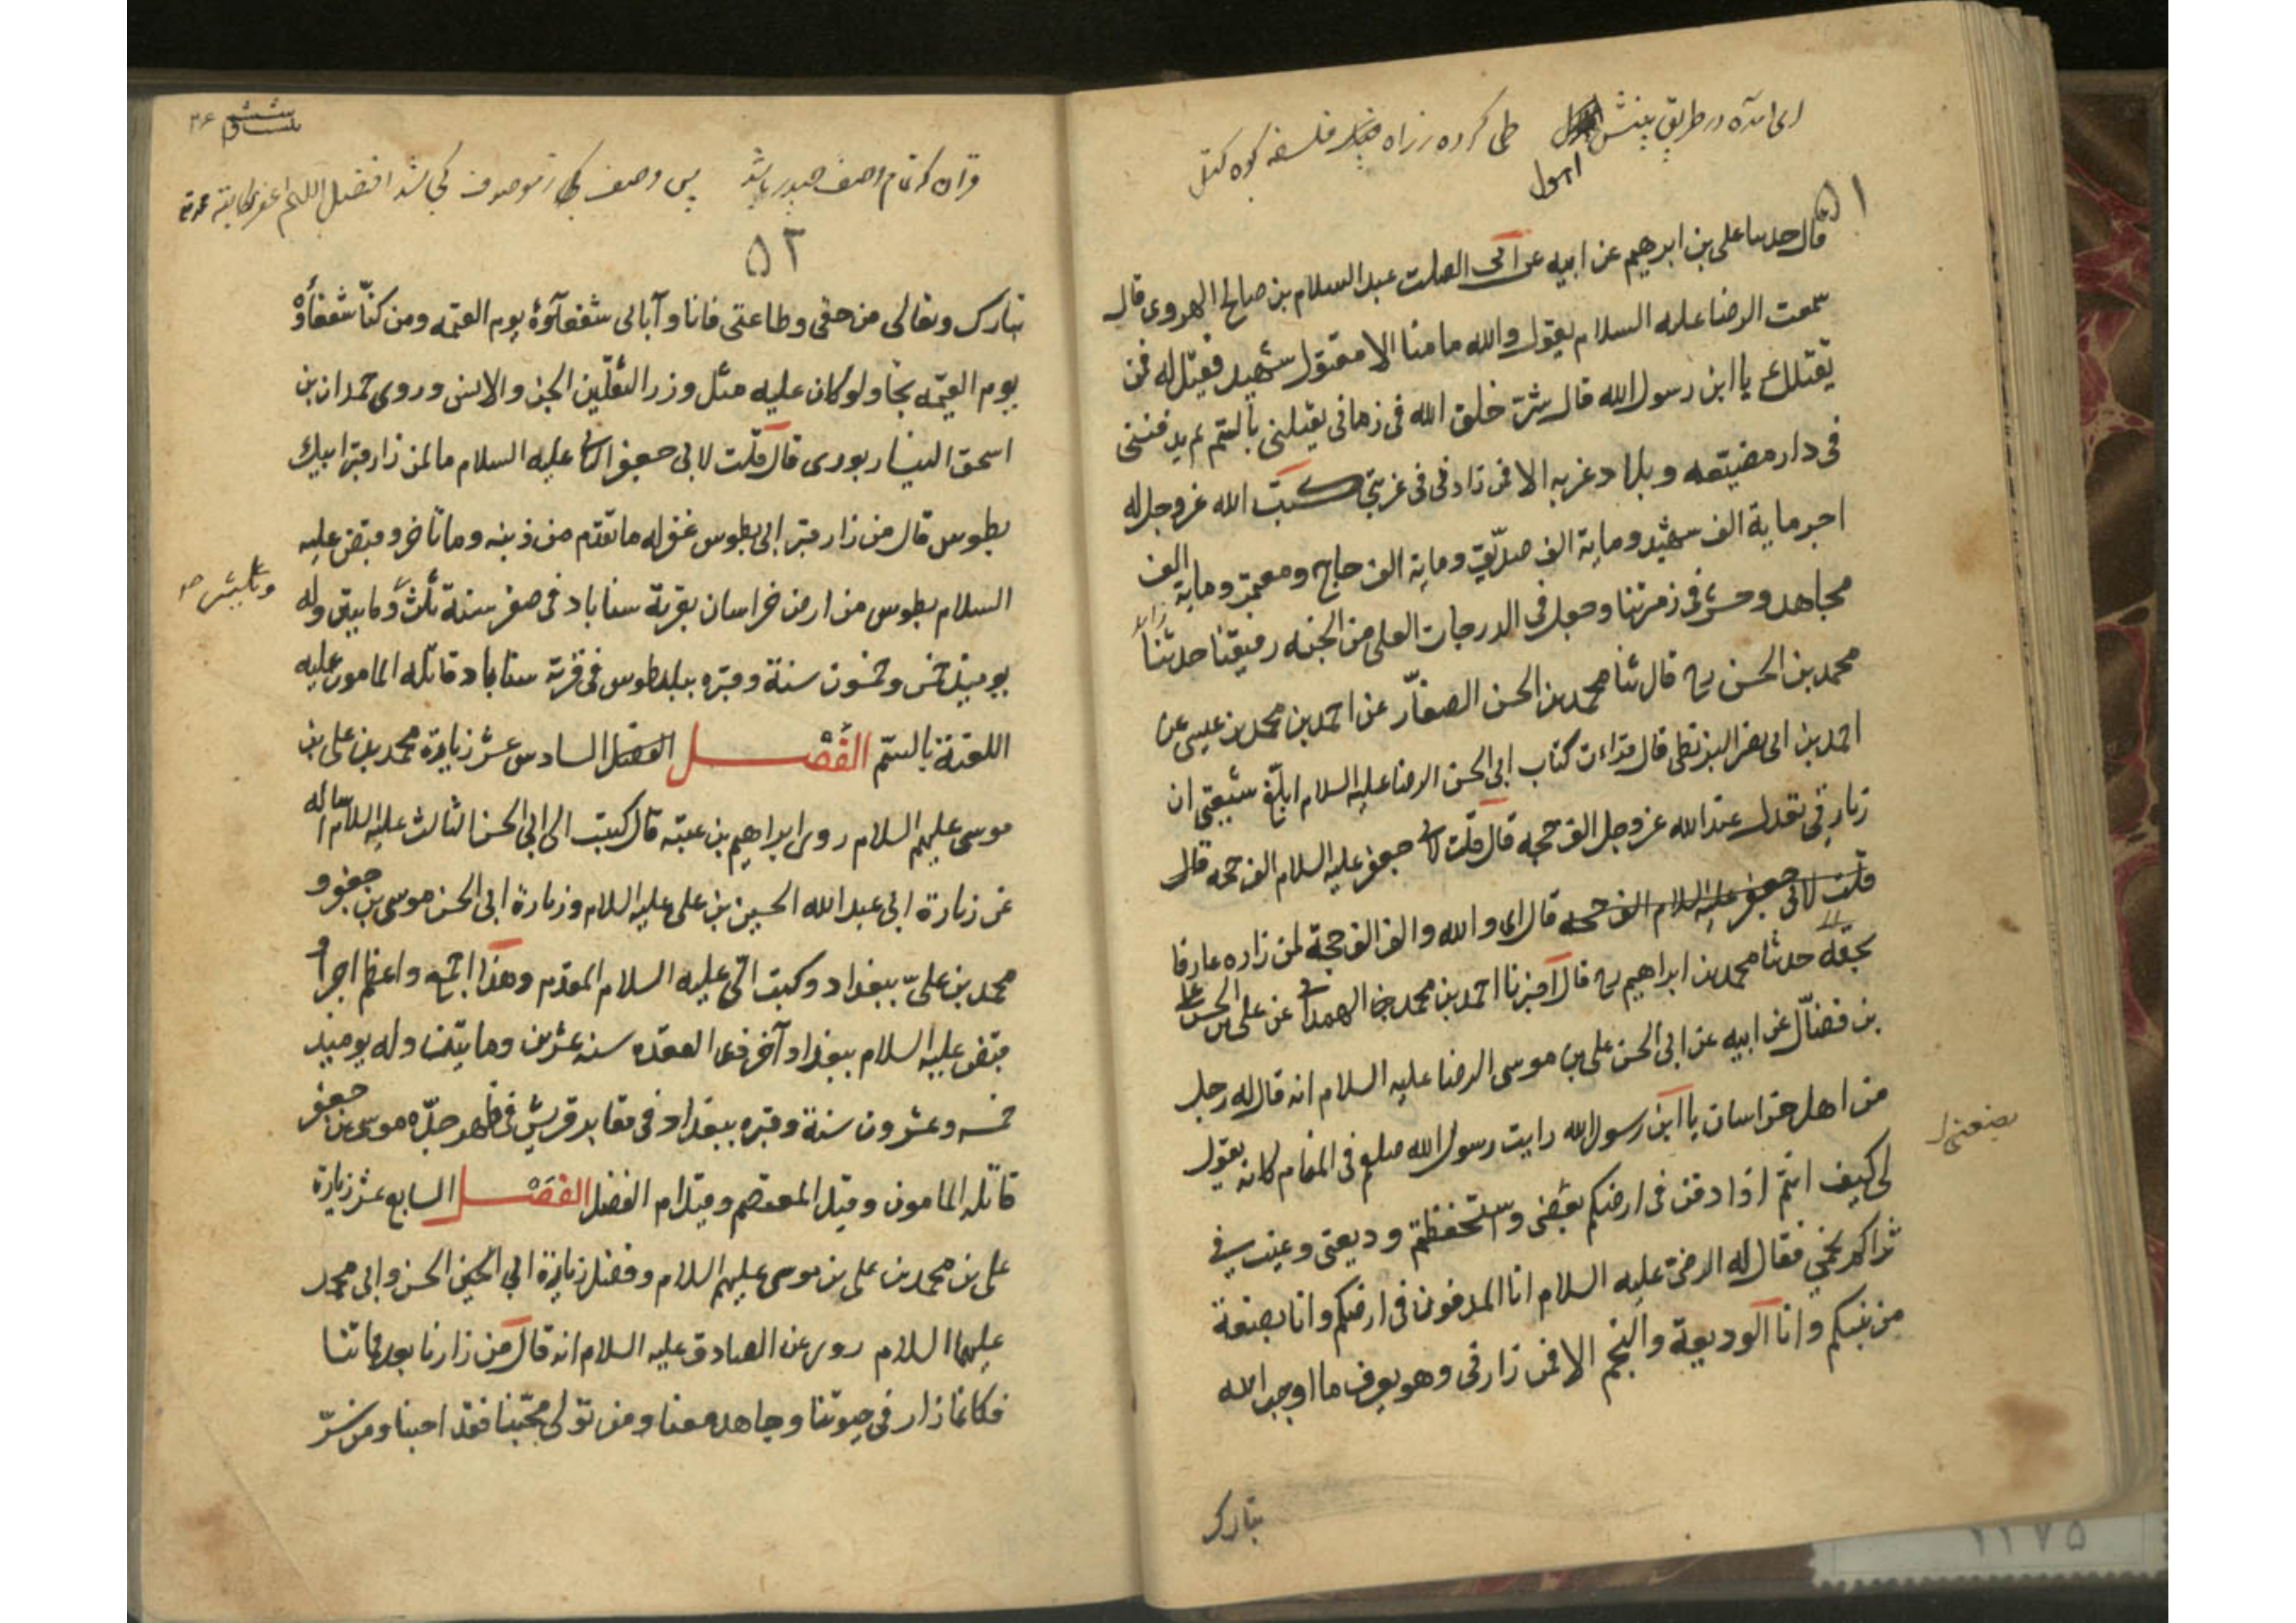 ای آمده در طریق بینش اول طی کرده ز راه فلسفه کوه کتل
اول
۵۱
قال حدثنا علی بن ابرهیم عن ابیه عن ابی الصلت عبد السلام بن صالح الهروی قال
سمعت الرضا علیه السلام یقول والله ما منا الا مقتول شهید فقیل له فمن
یقتلک یا ابن رسول الله قال شر خلق الله فی زمانی یقتلنی بالسّم ثم یدفننی
فی دار مضیعه و بلاد غربه الا فمن زارنی فی غربتی کتب الله عز وجل له
اجر مایة الف شهید ومایة الف صدّیق ومایة الف حاج ومعتمر ومایة الف
مجاهد وحشر فی زمرتنا وجعل فی الدرجات العلی من الجنه رفیقنا حدثنا
محمد بن الحسن ره قال ثنا محمد بن الحسن الصفّار عن احمد بن محمد بن عیسی عن
احمد بن ابی نصر البزنطی قال قراءت کتاب ابی الحسن الرضا علیه السلام ابلغ شیعتی ان
زیارتی تعدل عند الله عز وجل الف حجه قال قلت لابی جعفر علیه السلام الف حجه قال
قلت لابی جعفر علیه السلام الف حجه قال ای والله والف الف حجة لمن زاره عارفا
بحقّه حدثنا محمد بن ابراهیم ره قال اخبرنا احمد بن محمد بن الهمدانی عن علی بن الحسن بن علی
بن فضّال عن ابیه عن ابی الحسن علی بن موسی الرضا علیه السلام انه قال له رجل
من اهل خراسان یا ابن رسول الله رایت رسول الله صلعم فی المنام کانه یقول
لی کیف انتم اذا دفن فی ارضکم بعضی واستحفظتم ودیعتی وغیب فی
بضعتی
ثراکم نجمی فقال له الرضی علیه السلام انا المدفون فی ارضکم وانا بضعة
من نبیکم وانا الودیعة والنجم الا فمن زارنی وهو یعرف ما اوجب الله
تبارک
۱۱۷۵
ششم
۲۶
قران که تمام وصف حیدر باشد پس وصف
۵۲
تبارک وتعالی من حقی وطاعتی فانا وآبائی شفعآؤه یوم القیمه ومن کنّا شفعاؤه
یوم القیمه نجا ولو کان علیه مثل وزر الثقلین الجن والانس وروی حمدان بن
اسحق النیسابوری قال قلت لابی جعفر الثانی علیه السلام ما لمن زار قبر ابیک
بطوس قال من زار قبر ابی بطوس غفر له ما تقدم من ذنبه وما تاخر وقبض علیه
السلام بطوس من ارض خراسان بقریة سناباد فی صفر سنة ثلث ومایتین وله
یومیذ خمس وخمسون سنة وقبره ببلد طوس فی قریة سناباد قاتله المامون علیه
اللعنة بالسّم الفصل الفصل السادس عشر زیارة محمد بن علی بن
موسی علیهم السلام روی ابراهیم بن عقبه قال کتبت الی ابی الحسن الثالث علیه السلام اساله
عن زیارة ابی عبد الله الحسین بن علی علیه السلام وزیارة ابی الحسن موسی بن جعفر و
محمد بن علیّ ببغداد وکتب الیّ علیه السلام المقدم وهذا اجمع واعظم اجرا و
قبض علیه السلام ببغداد آخر ذی القعده سنه عشرین ومایتین وله یومیذ
خمسه وعشرون سنة وقبره ببغداد فی مقابر قریش فی ظهر جدّه موسی بن جعفر
قاتله المامون وقیل المعتصم وقیل ام الفضل الفصل السابع عشر زیارة
علی بن محمد بن علی بن موسی علیهم السلام وفضل زیارة ابی الحسن وابی محمد
علیهما السلام روی عن الصادق علیه السلام انه قال من زارنا بعد مماتنا
فکانما زار فی حیوتنا وجاهد معنا ومن تولی محبّنا فقد احبنا ومن سرّ